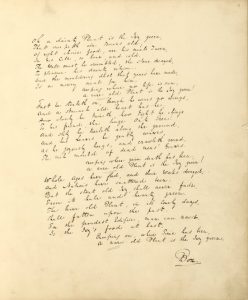 Oh a dainty Plant is the Ivy green,
That creepeth o'er ruins old,
Of right choice food, are his meals I ween,
In his Cell so lone and cold.
The Wall must be crumbled, the stone decayed,
To pleasure his dainty whim:
And the mouldering dust that years have made,
Is a merry meal for him.
Creeping where no life is seen,
A rare old Plant is the Ivy green.
Fast he stealeth on, though he wears no wings,
And a staunch old heart has he;
How closely he twineth, how tight he clings
To his friend the huge Oak Tree.
And slyly he traileth along the ground
And his leaves he gently waves,
As he joyously hugs, and crawleth round
The rich mould of dead men's graves.
Creeping where grim death has been,
A rare old Plant is the Ivy green.
Whole Ages have fled, and their Works decayed,
And Nations have scattered been.
But the stout old Ivy shall never fade
From its hale and hearty green.
The brave old Plant, in its lonely days,
Shall fatten upon the past:
For the Grandest Edifice man can raise
Is the Ivy's food at last.
Creeping on, where Time has been,
A rare old Plant is the Ivy green.
Boz